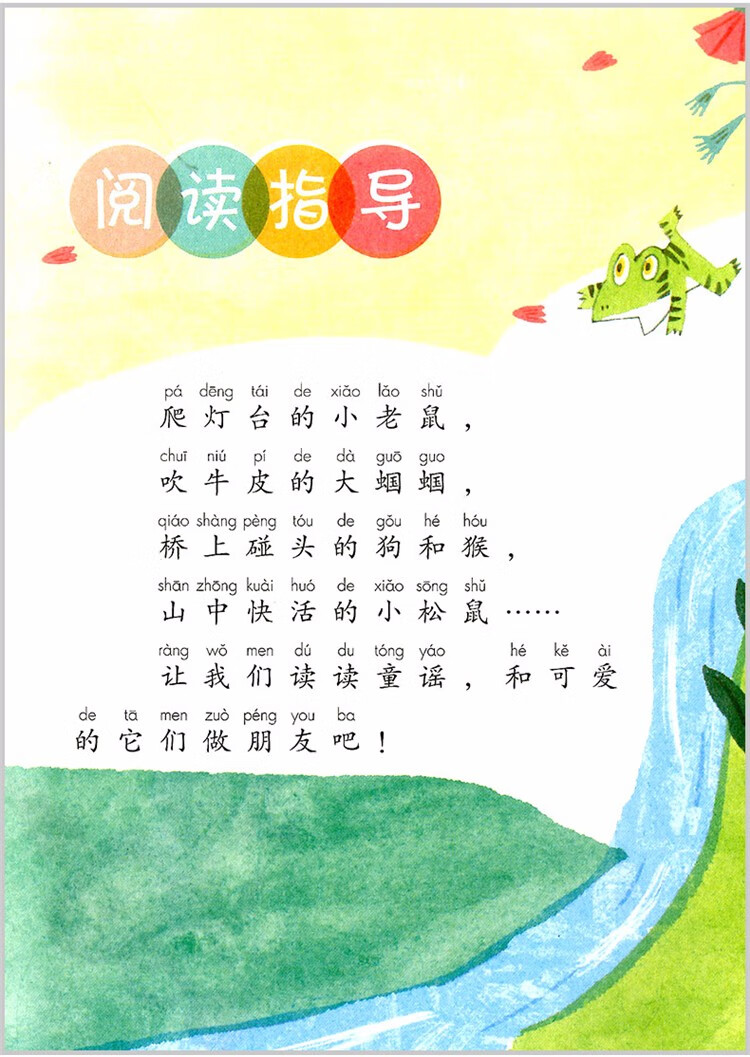 阅读指导
pá dēng tái de xiǎo lǎo shǔ
爬灯台的小老鼠，
chuī niú pí de dà guō guo
吹牛皮的大蝈蝈，
qiáo shàng pèng tóu de gǒu hé hóu
桥上碰头的狗和猴，
shān zhōng kuài huó de xiǎo sōng shǔ
山中快活的小松鼠……
ràng wǒ men dú du tóng yáo hé kě ài
让我们读读童谣，和可爱
de tā men zuò péng you ba
的它们做朋友吧！